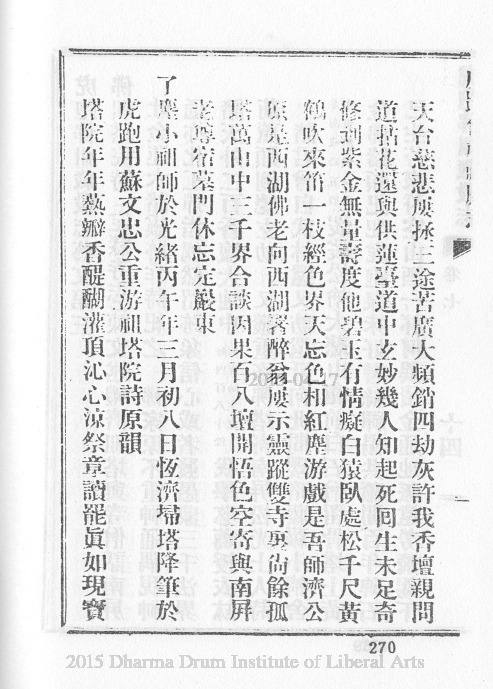 天台慈悲屢拯三途苦廣大頻銷四劫灰許我香壇親問
道拈花還與供蓮臺道中玄妙幾人知起死回生未足奇
修到紫金無量壽度他碧玉有情癡白猿臥處松千尺黃
鶴吹來笛一枝經色界天忘色相紅塵游戲是吾師濟公
原是西湖佛老向西湖署醉翁屢示靈蹤雙寺裏尚餘孤
塔萬山中三千界合談因果百八壇開悟色空寄與南屏
老尊宿墓門休忘定嚴東
了塵小祖師於光緒丙午年三月初八日恆濟埽塔降筆於
虎跑用蘇文忠公重游祖塔院詩原韻
塔院年年爇瓣香醍醐灌頂沁心涼祭章讀罷眞如現寶
270
2015 Dharma Drum Institute of Liberal Arts